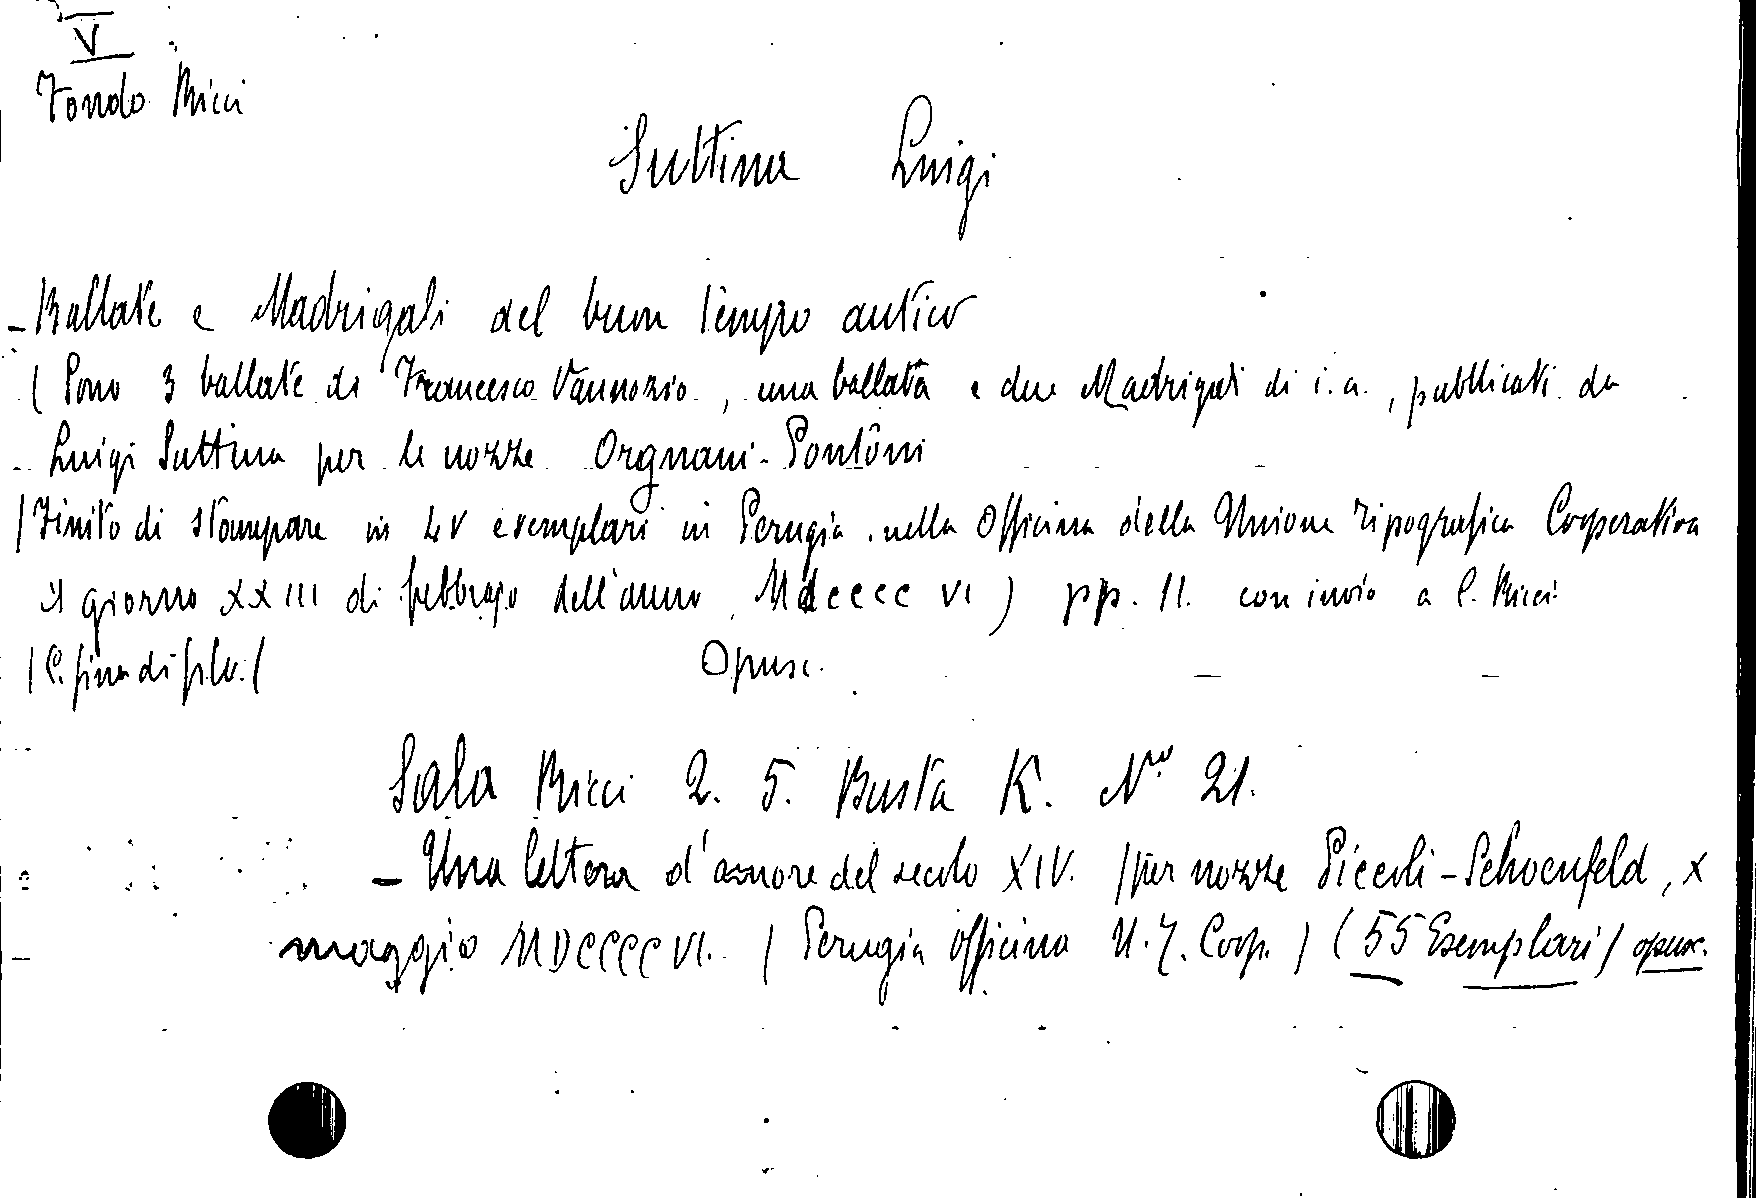 V
Fondo Ricci
Suttina Luigi
- Ballate e Madrigali del buon tempo antico
( Sono 3 ballate di Francesco Vannozzo, una ballata e due Madrigali di i.a., pubblicati da
Luigi Suttina per le nozze Orgnani-Pontôni
/ Finito di stampare in LV esemplari in Perugia nella Officina della Unione Tipografica Cooperativa
il giorno XXIII di febbrajo dell'anno Mdcccc VI ) pp. 11. con invio a C. Ricci
Opusc.
Sala Ricci 2. 5. Busta K. Nro 21.
- Una lettera d'amore del secolo XIV. / per nozze Piccoli-Schoenfeld, X
maggio MDCCCCVI. / Perugia officina U.T. Coop. ) ( 55 Esemplari / opusc.